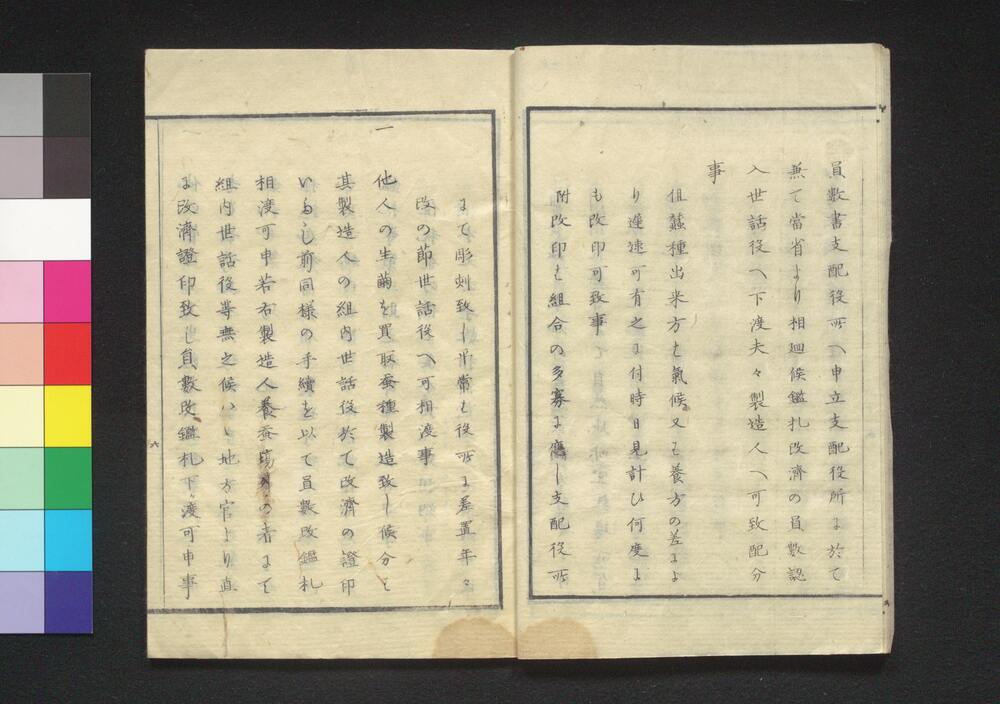 員數書支配役所へ申立支配役所ゟ於て
兼て當省より相廻候鑑札改濟の員數認
入世話役へ下渡夫々製造人へ可致配分
事
但蠶種出来方も氣候又も養方の差よ
り遅速可有之ニ付時日見計ひ何度ニ
も改印可致事
附改印も組合の多寡ニ應し支配役所
ニて彫刻致し平常も役所ニ差置年々
改の節世話役へ可相渡事
一
他人の生繭を買取蚕種製造致し候分も
其製造人の組内世話役於て改濟の證印
いたし前同様の手續を以て員數改鑑札
相渡可申若右製造人養蚕場の者ニて
組内世話役等無之候ハヽ地方官より直
ニ改濟證印致し員數改鑑札下ヶ渡可申事
六